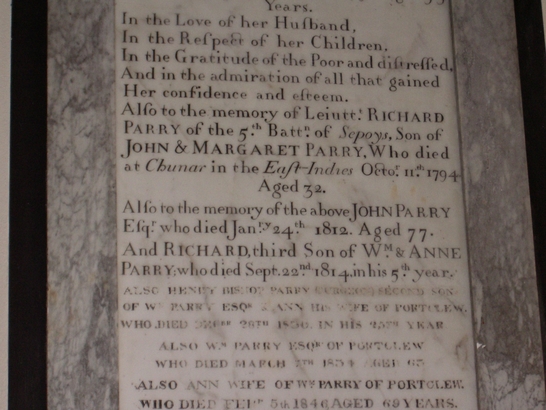 Years.
In the Love of her Huſband,
In the Reſpect of her Children,
In the Gratitude of the Poor and diſtreſſed,
And in the admiration of all that gained
Her confidence and eſteem.
Alſo to the memory of Leiutt. RICHARD
PARRY of the 5.th Battn. of Sepoys, Son of
JOHN & MARGARET PARRY, Who died
at Chunar in the Eaſt-Indies Octor. 11.th 1794
Aged 32.
Alſo to the memory of the above JOHN PARRY
Eſqr. who died Jany. 24.th 1812. Aged 77.
And RICHARD, third Son of Wm. & ANNE
PARRY; who died Sept. 22nd 1814, in his 5th year.
ALSO HENRY PARRY SECOND SON
OF Wm PARRY ESQR & ANN HIS WIFE OF PORTCLEW.
WHO DIED IN HIS YEAR
ALSO Wm PARRY ESQR OF PORTCLEW
WHO DIED MARCH AGED
ALSO ANN WIFE OF Wm PARRY OF PORTCLEW.
WHO DIED 1846 AGED 69 YEARS.